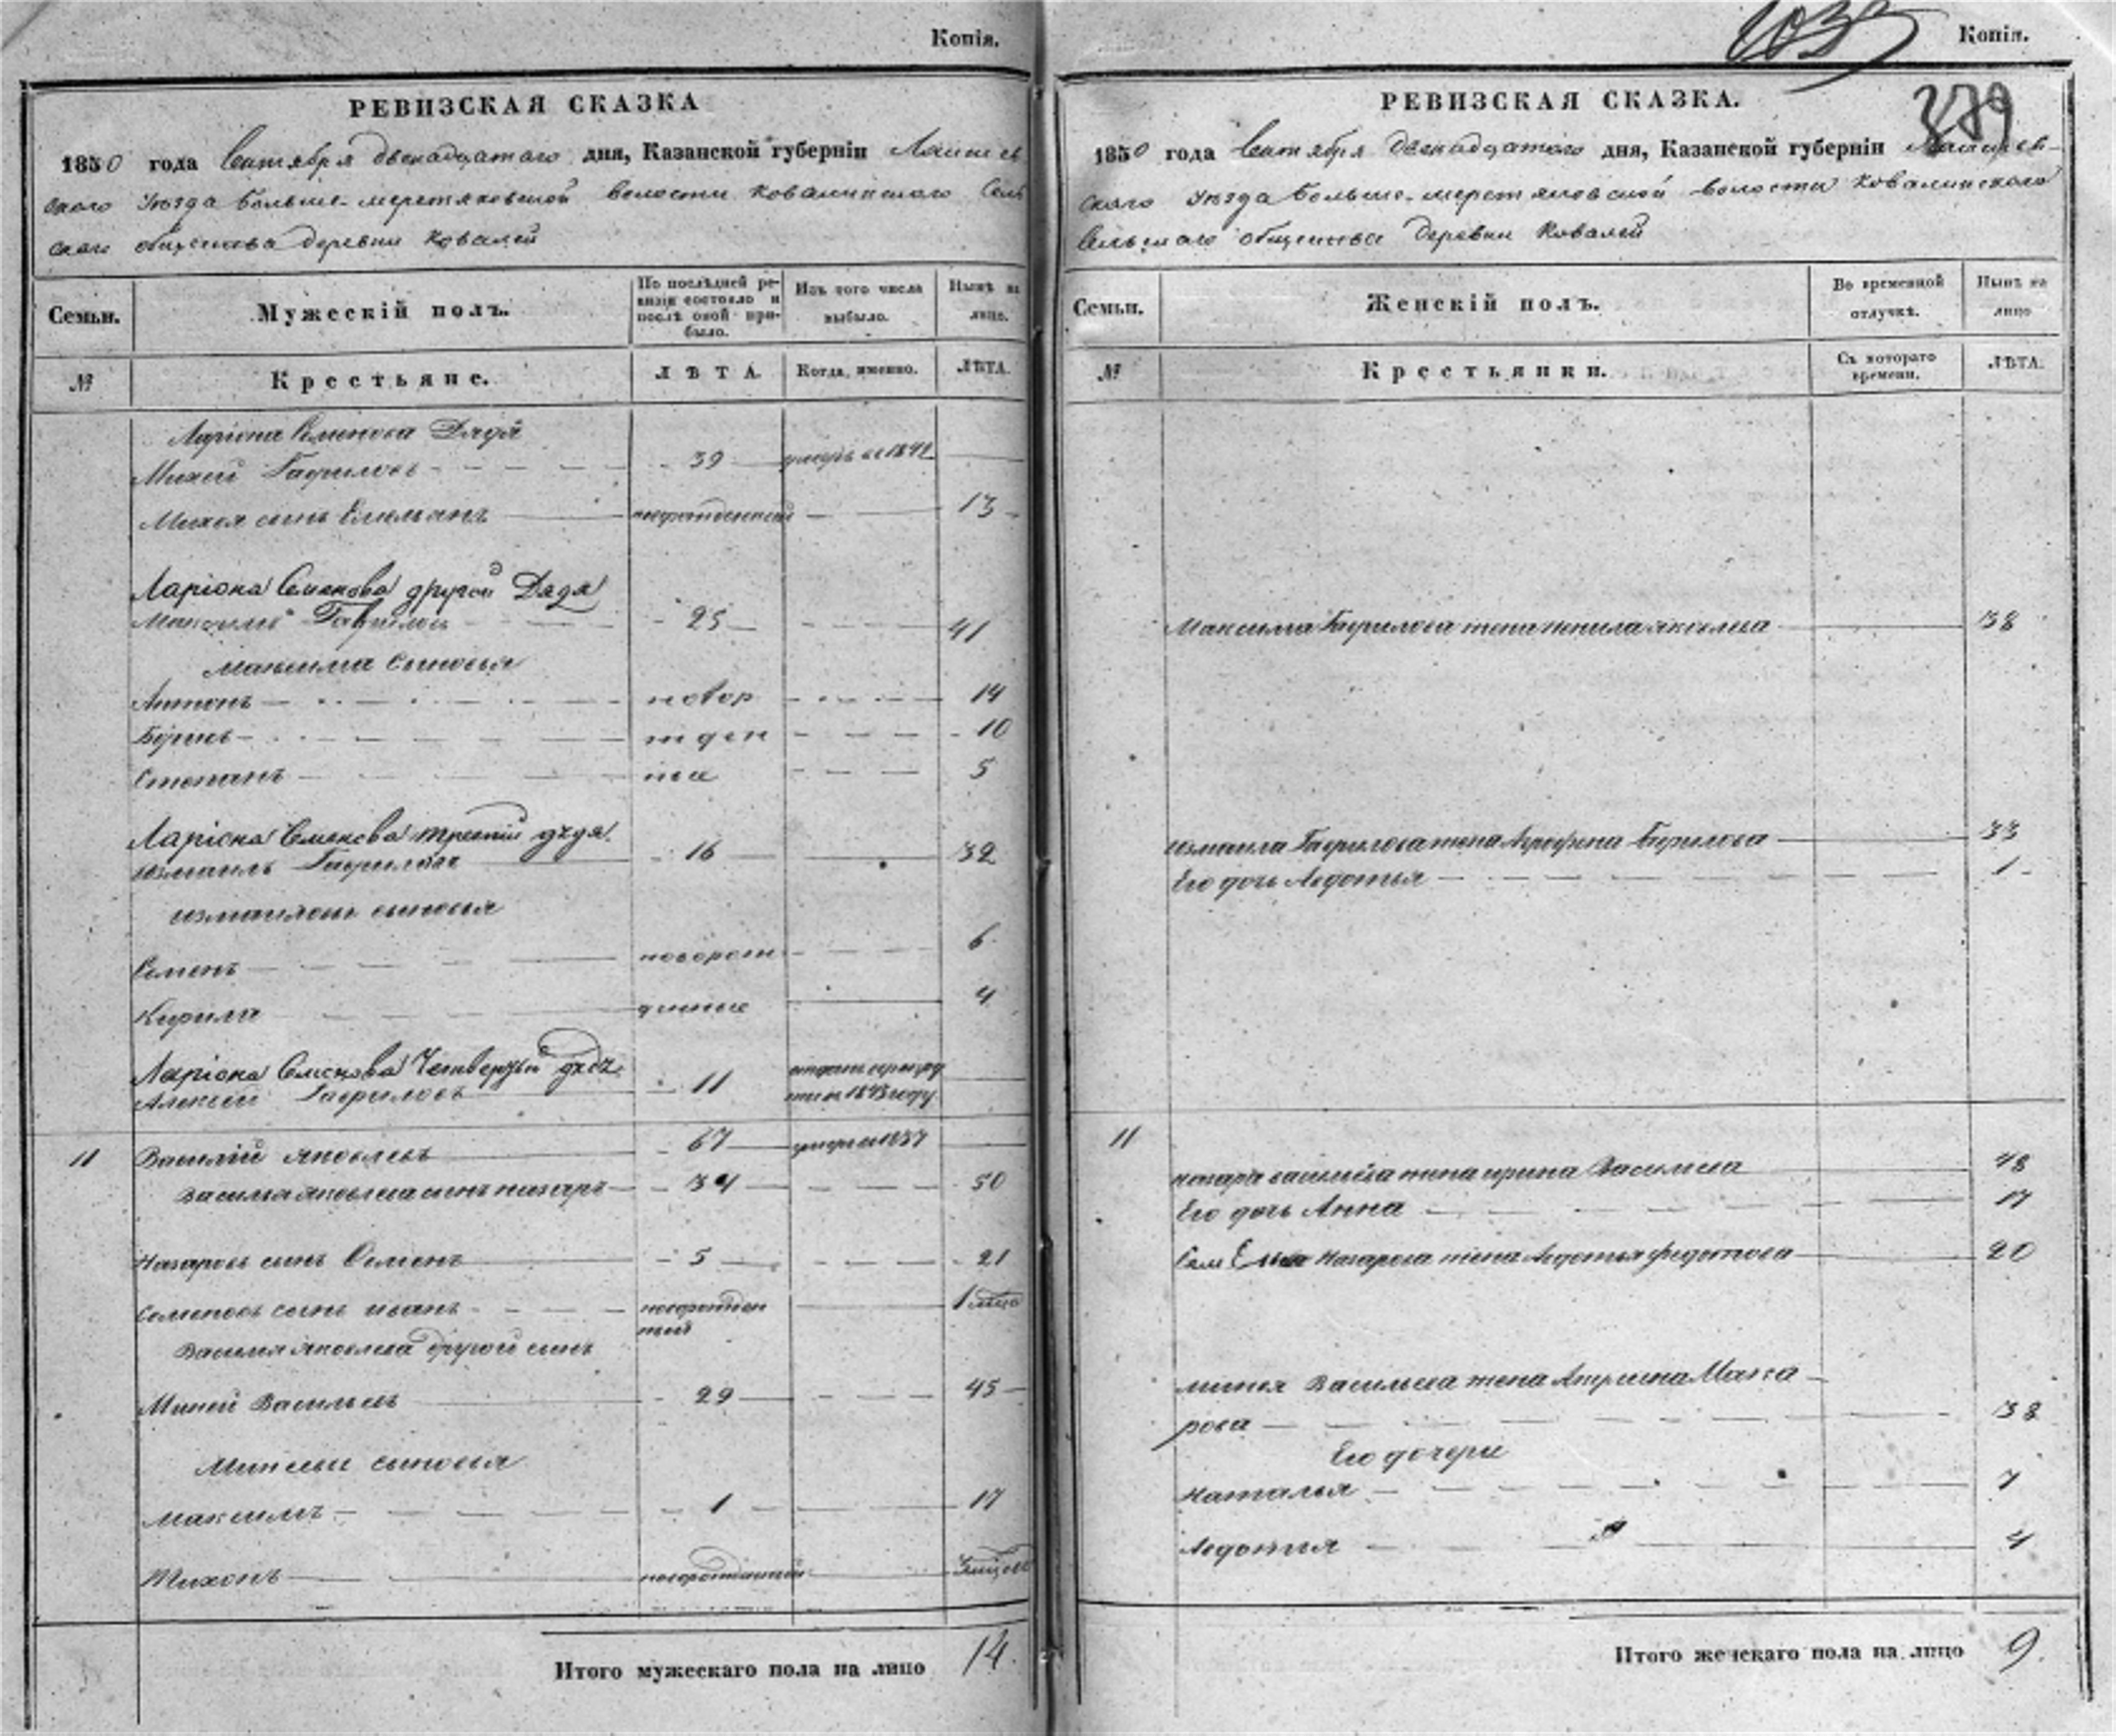 Копія.
РЕВИЗСКАЯ СКАЗКА
1850 года Сентября двенадцатаго дня, Казанской губерніи Лаишев
скаго уѣзда больше-меретяковской волости ковалинскаго Сель
скаго общества деревни Ковалей
Семьи. Мужескій полъ. По послѣдней ре-визіи состояло и послѣ оной при-было. Изъ того числа выбыло. Нынѣ на лицо.
№ Крестьяне. ЛѢТА. Когда именно. ЛѢТА.
Ларіона Семенова Дядя
Михей Гаврилов 39 умеръ въ 184
Михея сынъ Емельянъ новорожденный 13
Ларіона Семенова другой Дядя
Максимъ Гаврилов 25 41
Максима сыновья
Антонъ новор 14
жден 10
Степанъ ные 5
Ларіона Семенова третій дядя
Измаилъ Гаврилов 16 32
измаиловы сыновья
Семенъ новорож 6
Кирила денные 4
Ларіона Семенова Четвертый дядя
Алексей Гавриловъ 11 отданъ в 1843 году
11 Василій яковлевъ 67 умеръ 1837
Василья яковлева сынъ назаръ 34 50
Назаровъ сынъ Семенъ 5 21
Семеновъ сынъ иванъ новорожден 1
ный
Василья яковлева другой сынъ
Миней Васильевъ 29 45
Минеевы сыновья
Максимъ 1 17
Тихонъ новорожденный
Итого мужескаго пола на лицо 14.
Копія.
1033
389
РЕВИЗСКАЯ СКАЗКА.
1850 года Сентября двенадцатаго дня, Казанской губерніи Лаишев-
скаго уѣзда больше-меретяковской волости ковалинскаго
Сельскаго общества деревни Ковалей
Семьи. Женскій полъ. Во временной отлучкѣ. Нынѣ на лицо
№ Крестьянки. Съ котораго времени. ЛѢТА.
Максима Гаврилова жена яковлева 38
измаила Гаврилова жена Аграфена Гаврилова 33
Его дочь Авдотья 1
11
назара васильева жена ирина Васильева 48
Его дочь Анна 17
Семена Назарова жена Авдотья федотова 20
минея Васильева жена Мака
рова 38
Его дочери
Наталья 7
Авдотья 4
Итого женскаго пола на лицо 9.